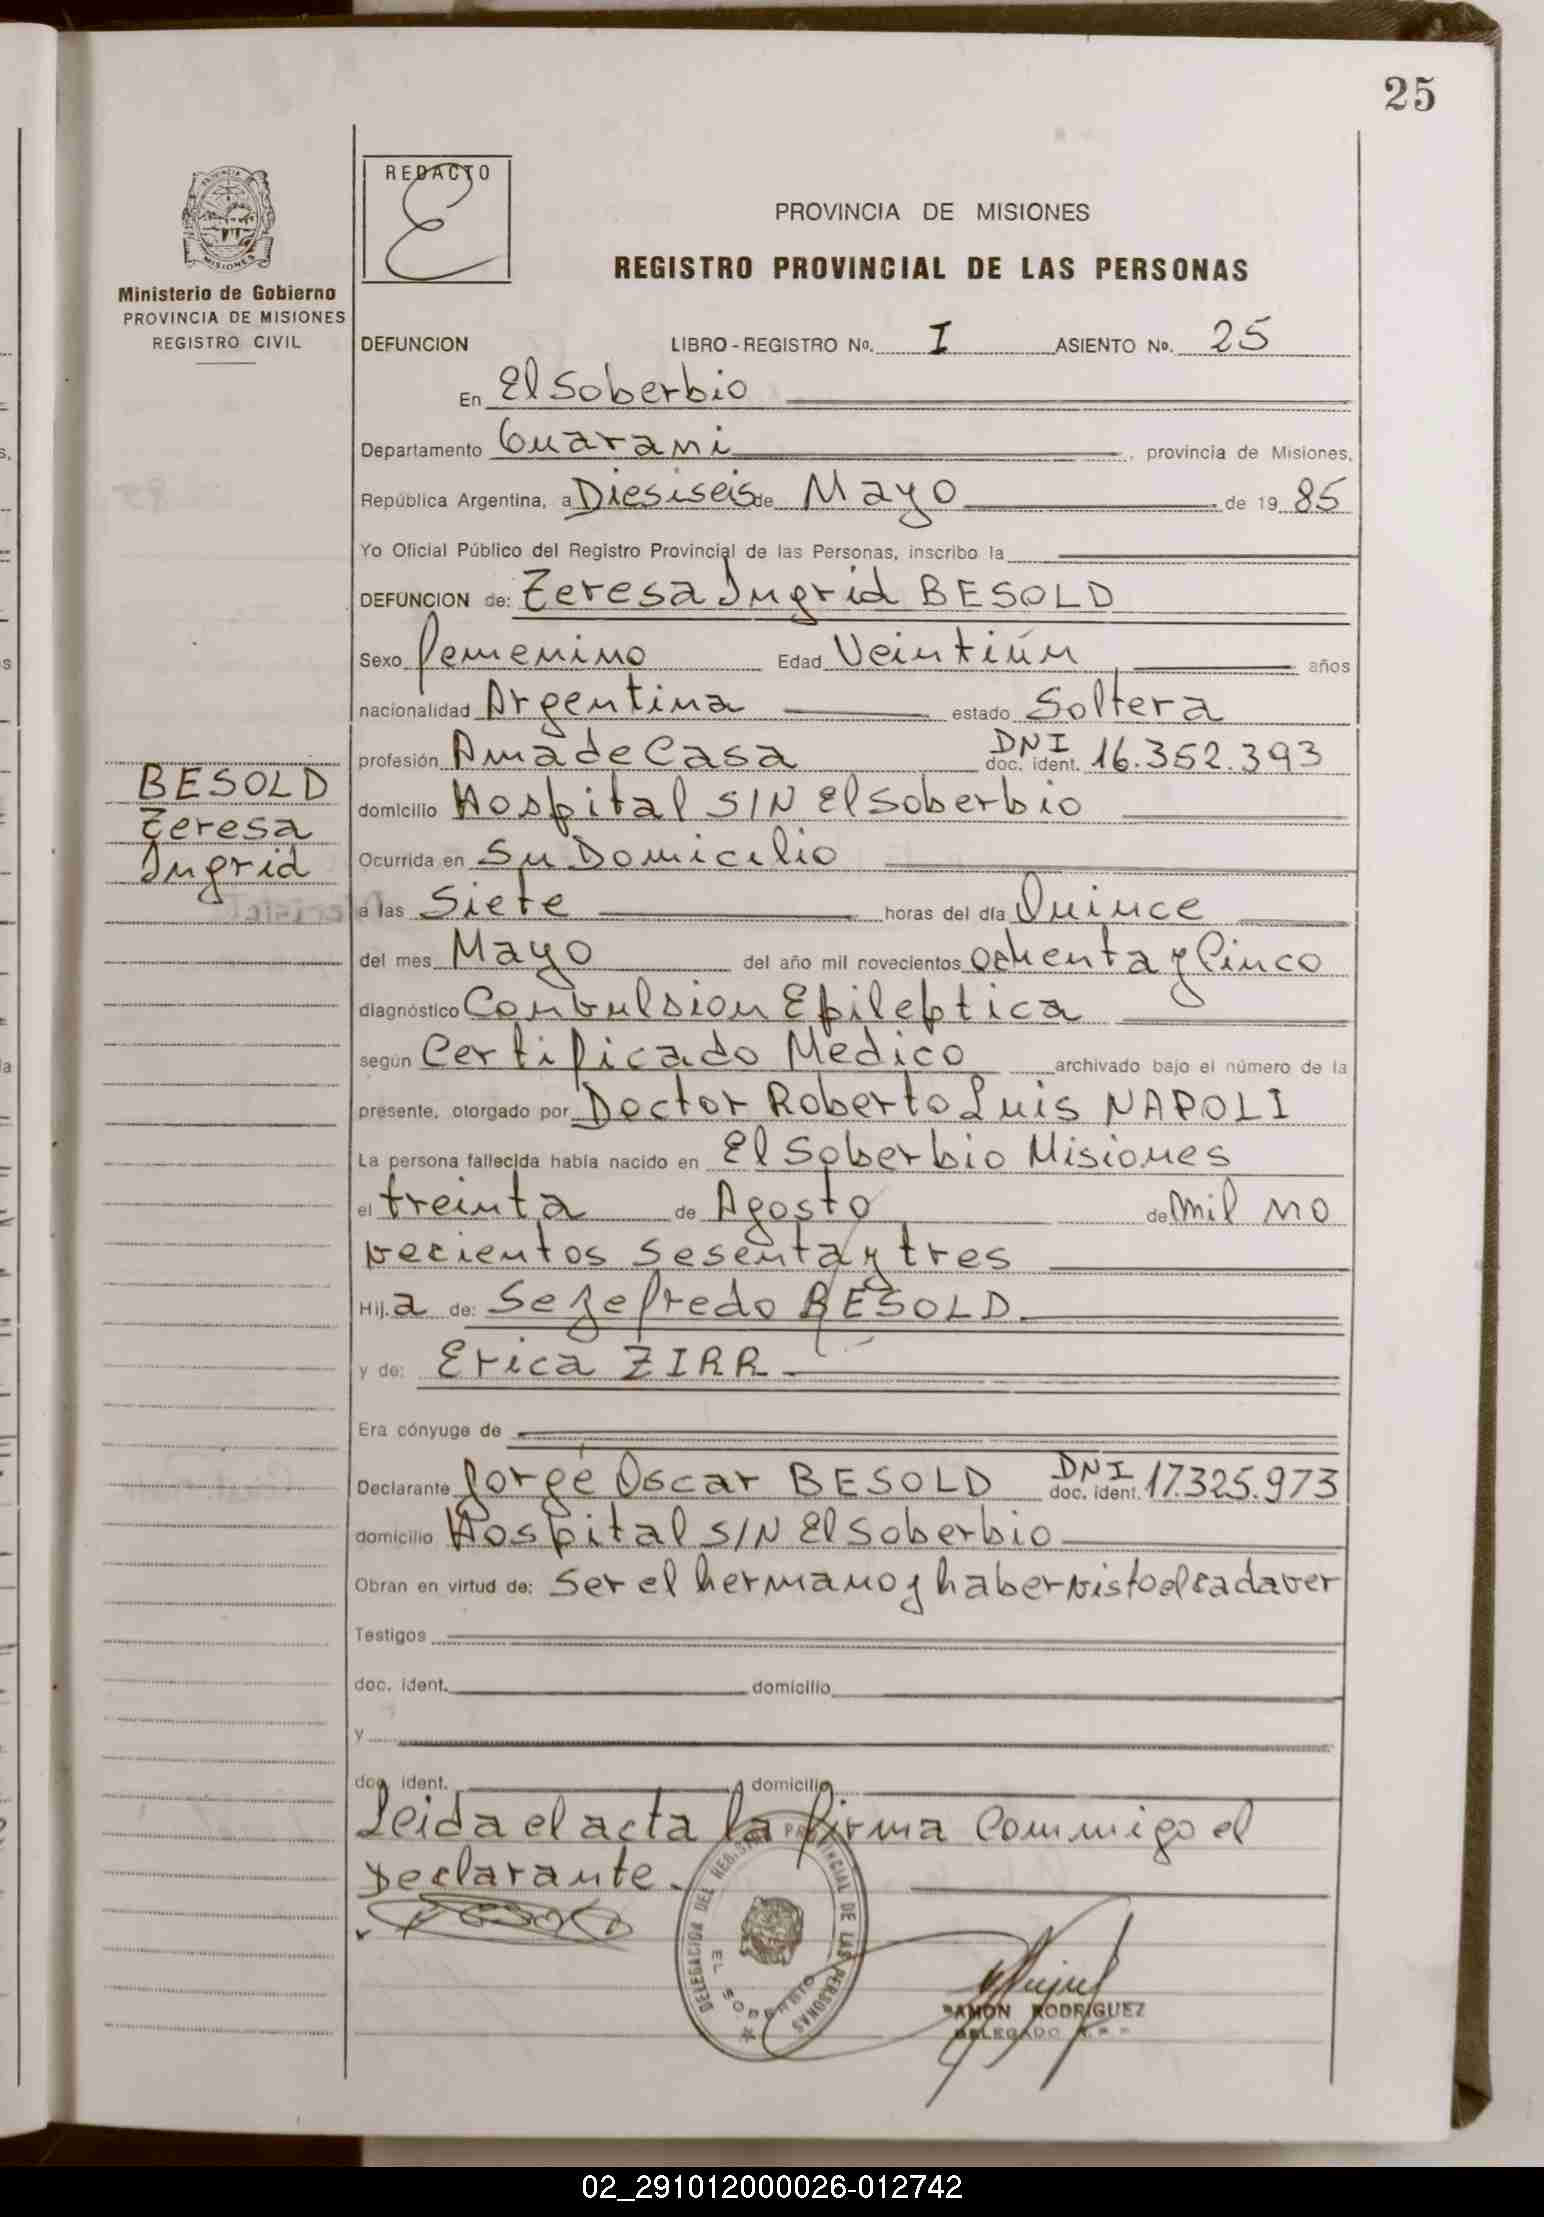 25
REDACTO
PROVINCIA DE MISIONES
REGISTRO PROVINCIAL DE LAS PERSONAS
MISIONES
Ministerio de Gobierno
PROVINCIA DE MISIONES
REGISTRO CIVIL
DEFUNCION LIBRO-REGISTRO No. I ASIENTO No. 25
En El Soberbio
Departamento Guarani, provincia de Misiones,
República Argentina, a Diesiseis de Mayo de 1985
Yo Oficial Público del Registro Provincial de las Personas, inscribo la
DEFUNCION de: Teresa Ingrid BESOLD
Sexo femenino Edad Veintiún años
nacionalidad Argentina estado Soltera
profesión Ama de Casa DNI doc. ident. 16.352.393
BESOLD
Teresa
Ingrid
domicilio Hospital S/N El Soberbio
Ocurrida en Su Domicilio
a las Siete horas del día Quince
del mes Mayo del año mil novecientos ochenta y Cinco
diagnóstico Conbulsion Epileptica
según Certificado Medico archivado bajo el número de la
presente, otorgado por Doctor Roberto Luis NAPOLI
La persona fallecida había nacido en El Soberbio Misiones
el treinta de Agosto de mil no
vecientos sesenta y tres
Hij.a de: Sezefredo BESOLD
y de: Erica ZIRR
Era cónyuge de
Declarante Jorge Oscar BESOLD DNI doc. ident. 17.325.973
domicilio Hospital S/N El Soberbio
Obran en virtud de: Ser el hermano y haber visto el cadaver
Testigos
doc. ident. domicilio
y
doc. ident. domicilio
Leida el acta la firma Conmigo el
Declarante.
DELEGACION DEL REG. PROVINCIAL DE LAS PERSONAS
EL SOBERBIO
RAMON RODRIGUEZ
DELEGADO
02_291012000026-012742